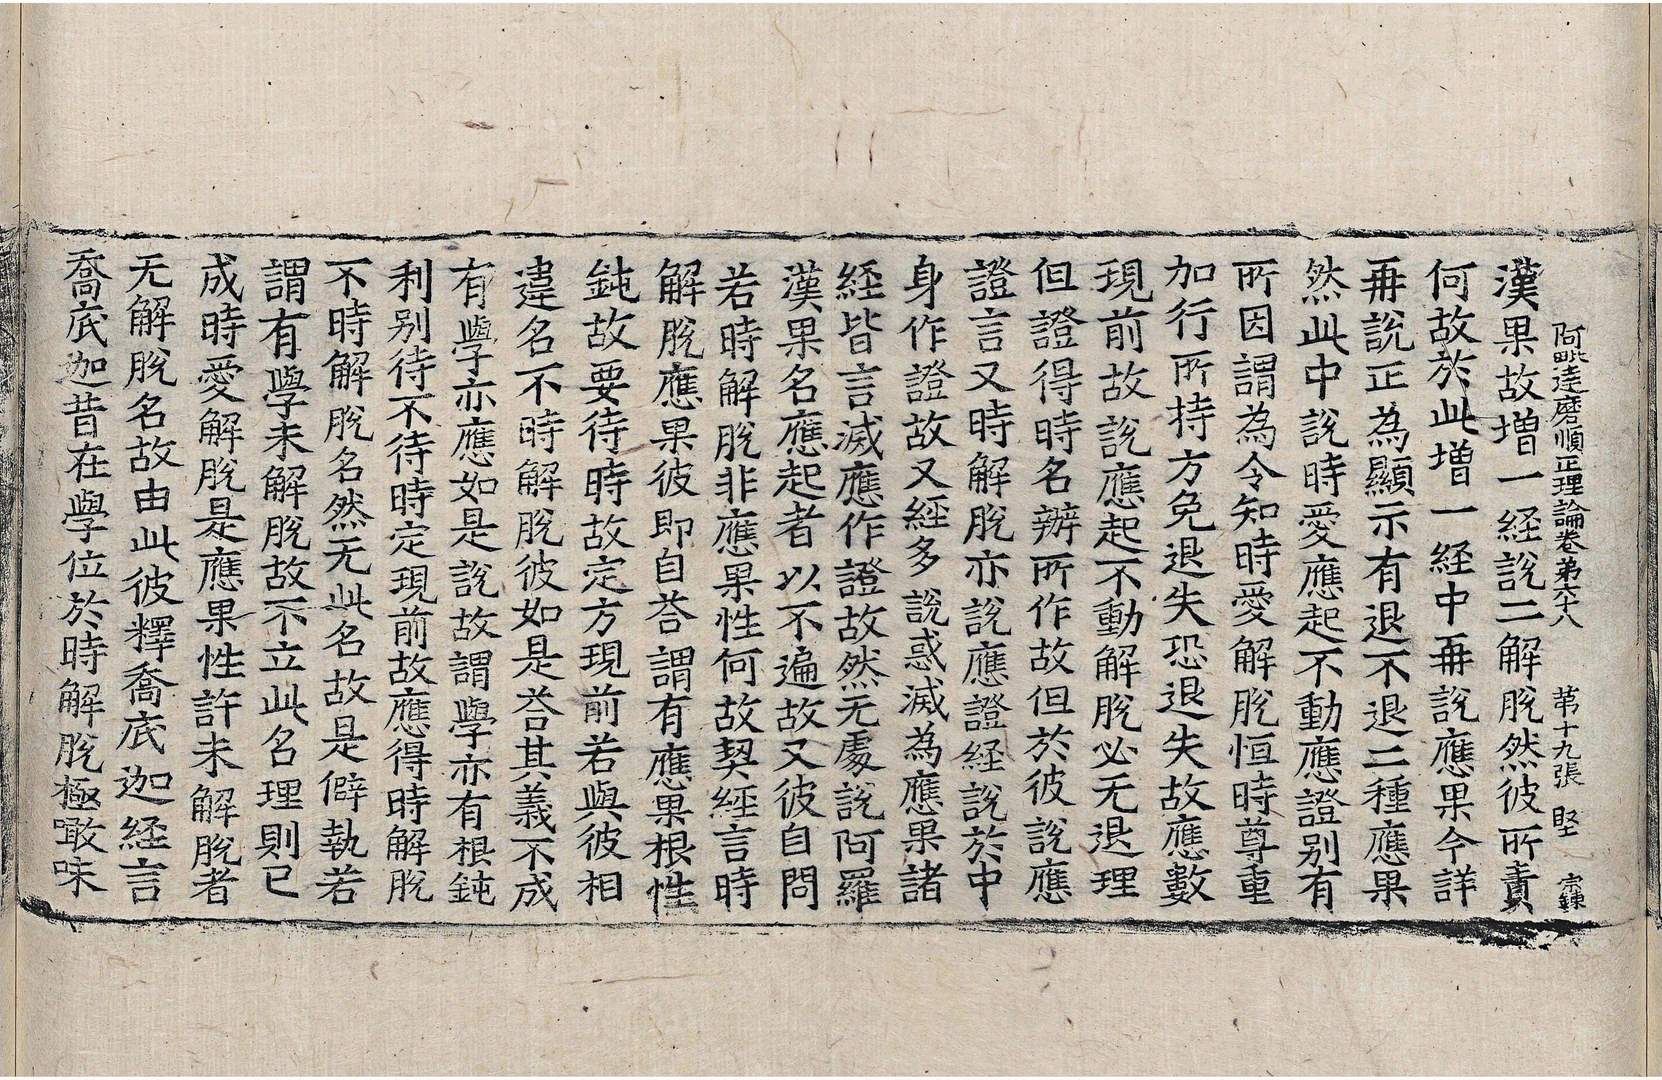 阿毗達磨順正理論卷第六十八 第十九張 堅 宗鍊
漢果故増一経說二解脫然彼所責
何故於此増一経中再說應果今詳
再說正為顯示有退不退二種應果
然此中說時愛應起不動應證别有
所因謂為令知時愛解脫恒時尊重
加行所持方免退失恐退失故應數
現前故說應起不動解脫必无退理
但證得時名辦所作故但於彼說應
證言又時解脫亦說應證経說於中
身作證故又經多說惑滅為應果諸
経皆言滅應作證故然无處說阿羅
漢果名應起者以不遍故又彼自問
若時解脫非應果性何故契經言時
解脫應果彼即自荅謂有應果根性
鈍故要待時故定方現前若與彼相
違名不時解脫彼如是荅其義不成
有學亦應如是說故謂學亦有根鈍
利别待不待時定現前故應得時解脫
不時解脫名然无此名故是僻執若
謂有學未解脫故不立此名理則已
成時愛解脫是應果性許未解脫者
无解脫名故由此彼釋喬底迦経言
喬底迦昔在學位於時解脫極噉味